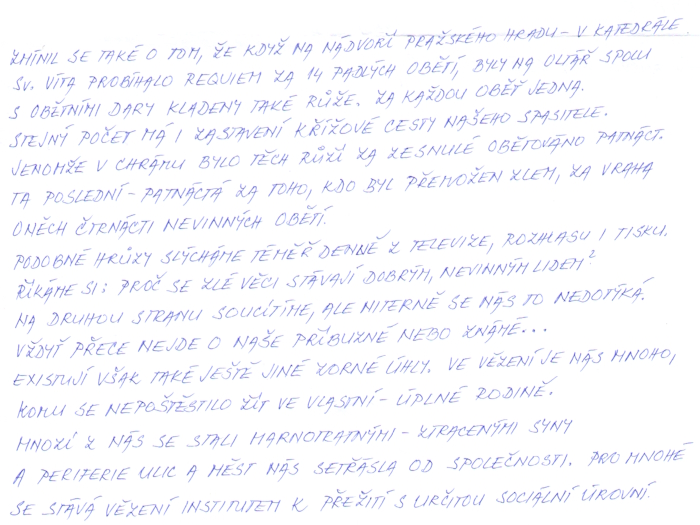 ZMÍNIL SE TAKÉ O TOM, ŽE KDYŽ NA NÁDVOŘÍ PRAŽSKÉHO HRADU - V KATEDRÁLE
SV. VÍTA PROBÍHALO REQUIEM ZA 14 PADLÝCH OBĚTÍ, BYLY NA OLTÁŘ SPOLU
S OBĚTNÍMI DARY KLADENY TAKÉ RŮŽE. ZA KAŽDOU OBĚŤ JEDNA.
STEJNÝ POČET MÁ I ZASTAVENÍ KŘÍŽOVÉ CESTY NAŠEHO SPASITELE.
JENOMŽE V CHRÁMU BYLO TĚCH RŮŽÍ ZA ZESNULÉ OBĚTOVÁNO PATNÁCT.
TA POSLEDNÍ - PATNÁCTÁ ZA TOHO, KDO BYL PŘEMOŽEN ZLEM, ZA VRAHA
ONĚCH ČTRNÁCTI NEVINNÝCH OBĚTÍ.
PODOBNÉ HRŮZY SLÝCHÁME TÉMĚŘ DENNĚ Z TELEVIZE, ROZHLASU I TISKU.
ŘÍKÁME SI: PROČ SE ZLÉ VĚCI STÁVAJÍ DOBRÝM, NEVINNÝM LIDEM?
NA DRUHOU STRANU SOUCÍTÍME, ALE NITERNĚ SE NÁS TO NEDOTÝKÁ.
VŽDYŤ PŘECE NEJDE O NAŠE PŘÍBUZNÉ NEBO ZNÁMÉ...
EXISTUJÍ VŠAK TAKÉ JEŠTĚ JINÉ ZORNÉ ÚHLY. VE VĚZENÍ JE NÁS MNOHO,
KOMU SE NEPOŠTĚSTILO ŽÍT VE VLASTNÍ - ÚPLNÉ RODINĚ.
MNOZÍ Z NÁS SE STALI MARNOTRATNÝMI - ZTRACENÝMI SYNY
A PERIFERIE ULIC A MĚST NÁS SETŘÁSLA OD SPOLEČNOSTI. PRO MNOHÉ
SE STÁVÁ VĚZENÍ INSTITUTEM K PŘEŽITÍ S URČITOU SOCIÁLNÍ ÚROVNÍ.